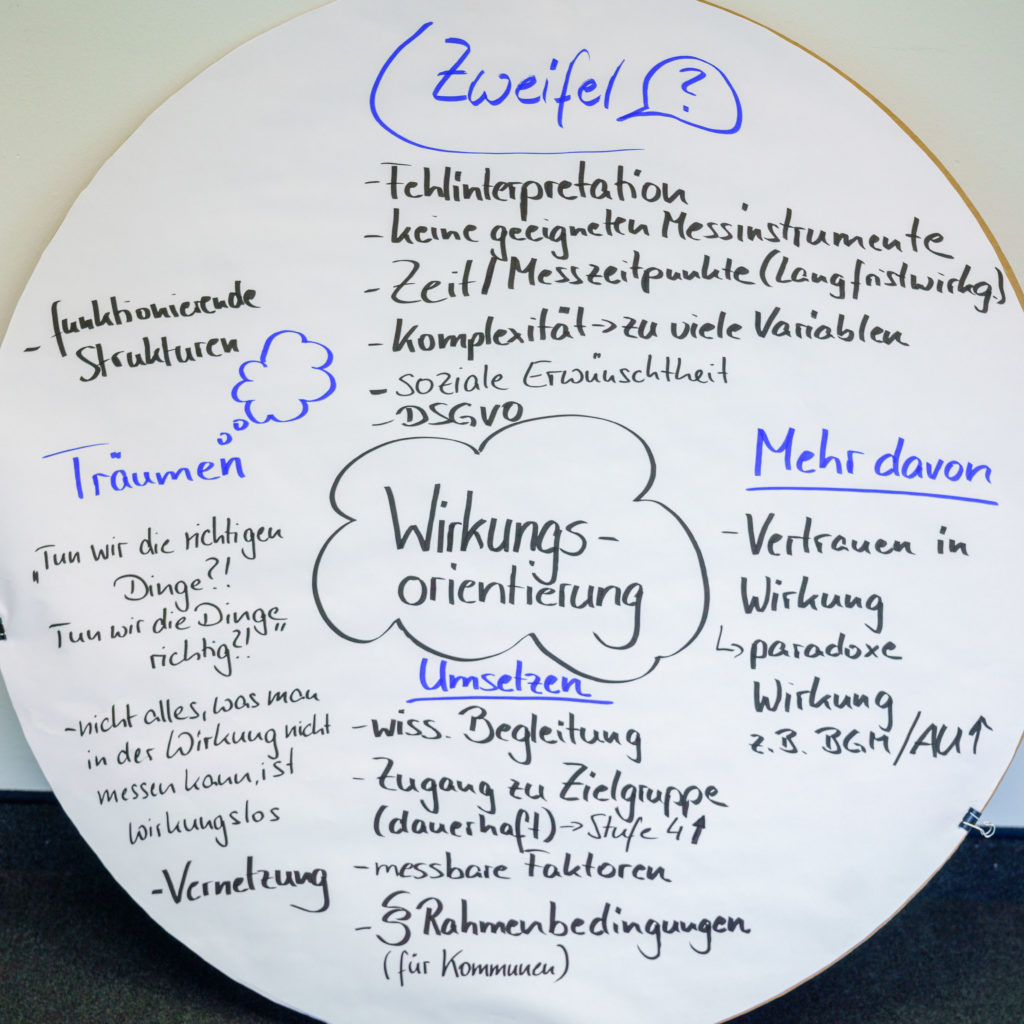 Zweifel ?
- Fehlinterpretation
- keine geeigneten Messinstrumente
- Zeit / Messzeitpunkte (Langfristwirkg.)
- Komplexität → zu viele Variablen
- soziale Erwünschtheit
- DSGVO
- funktionierende
Strukturen
Träumen
„Tun wir die richtigen
Dinge?!
Tun wir die Dinge
richtig?!"
- nicht alles, was man
in der Wirkung nicht
messen kann, ist
wirkungslos
- Vernetzung
Wirkungs-
orientierung
Mehr davon
- Vertrauen in
Wirkung
↳ paradoxe
Wirkung
z.B. BGM/AU↑
Umsetzen
- wiss. Begleitung
- Zugang zu Zielgruppe
(dauerhaft) → Stufe 4↑
- messbare Faktoren
- § Rahmenbedingungen
(für Kommunen)